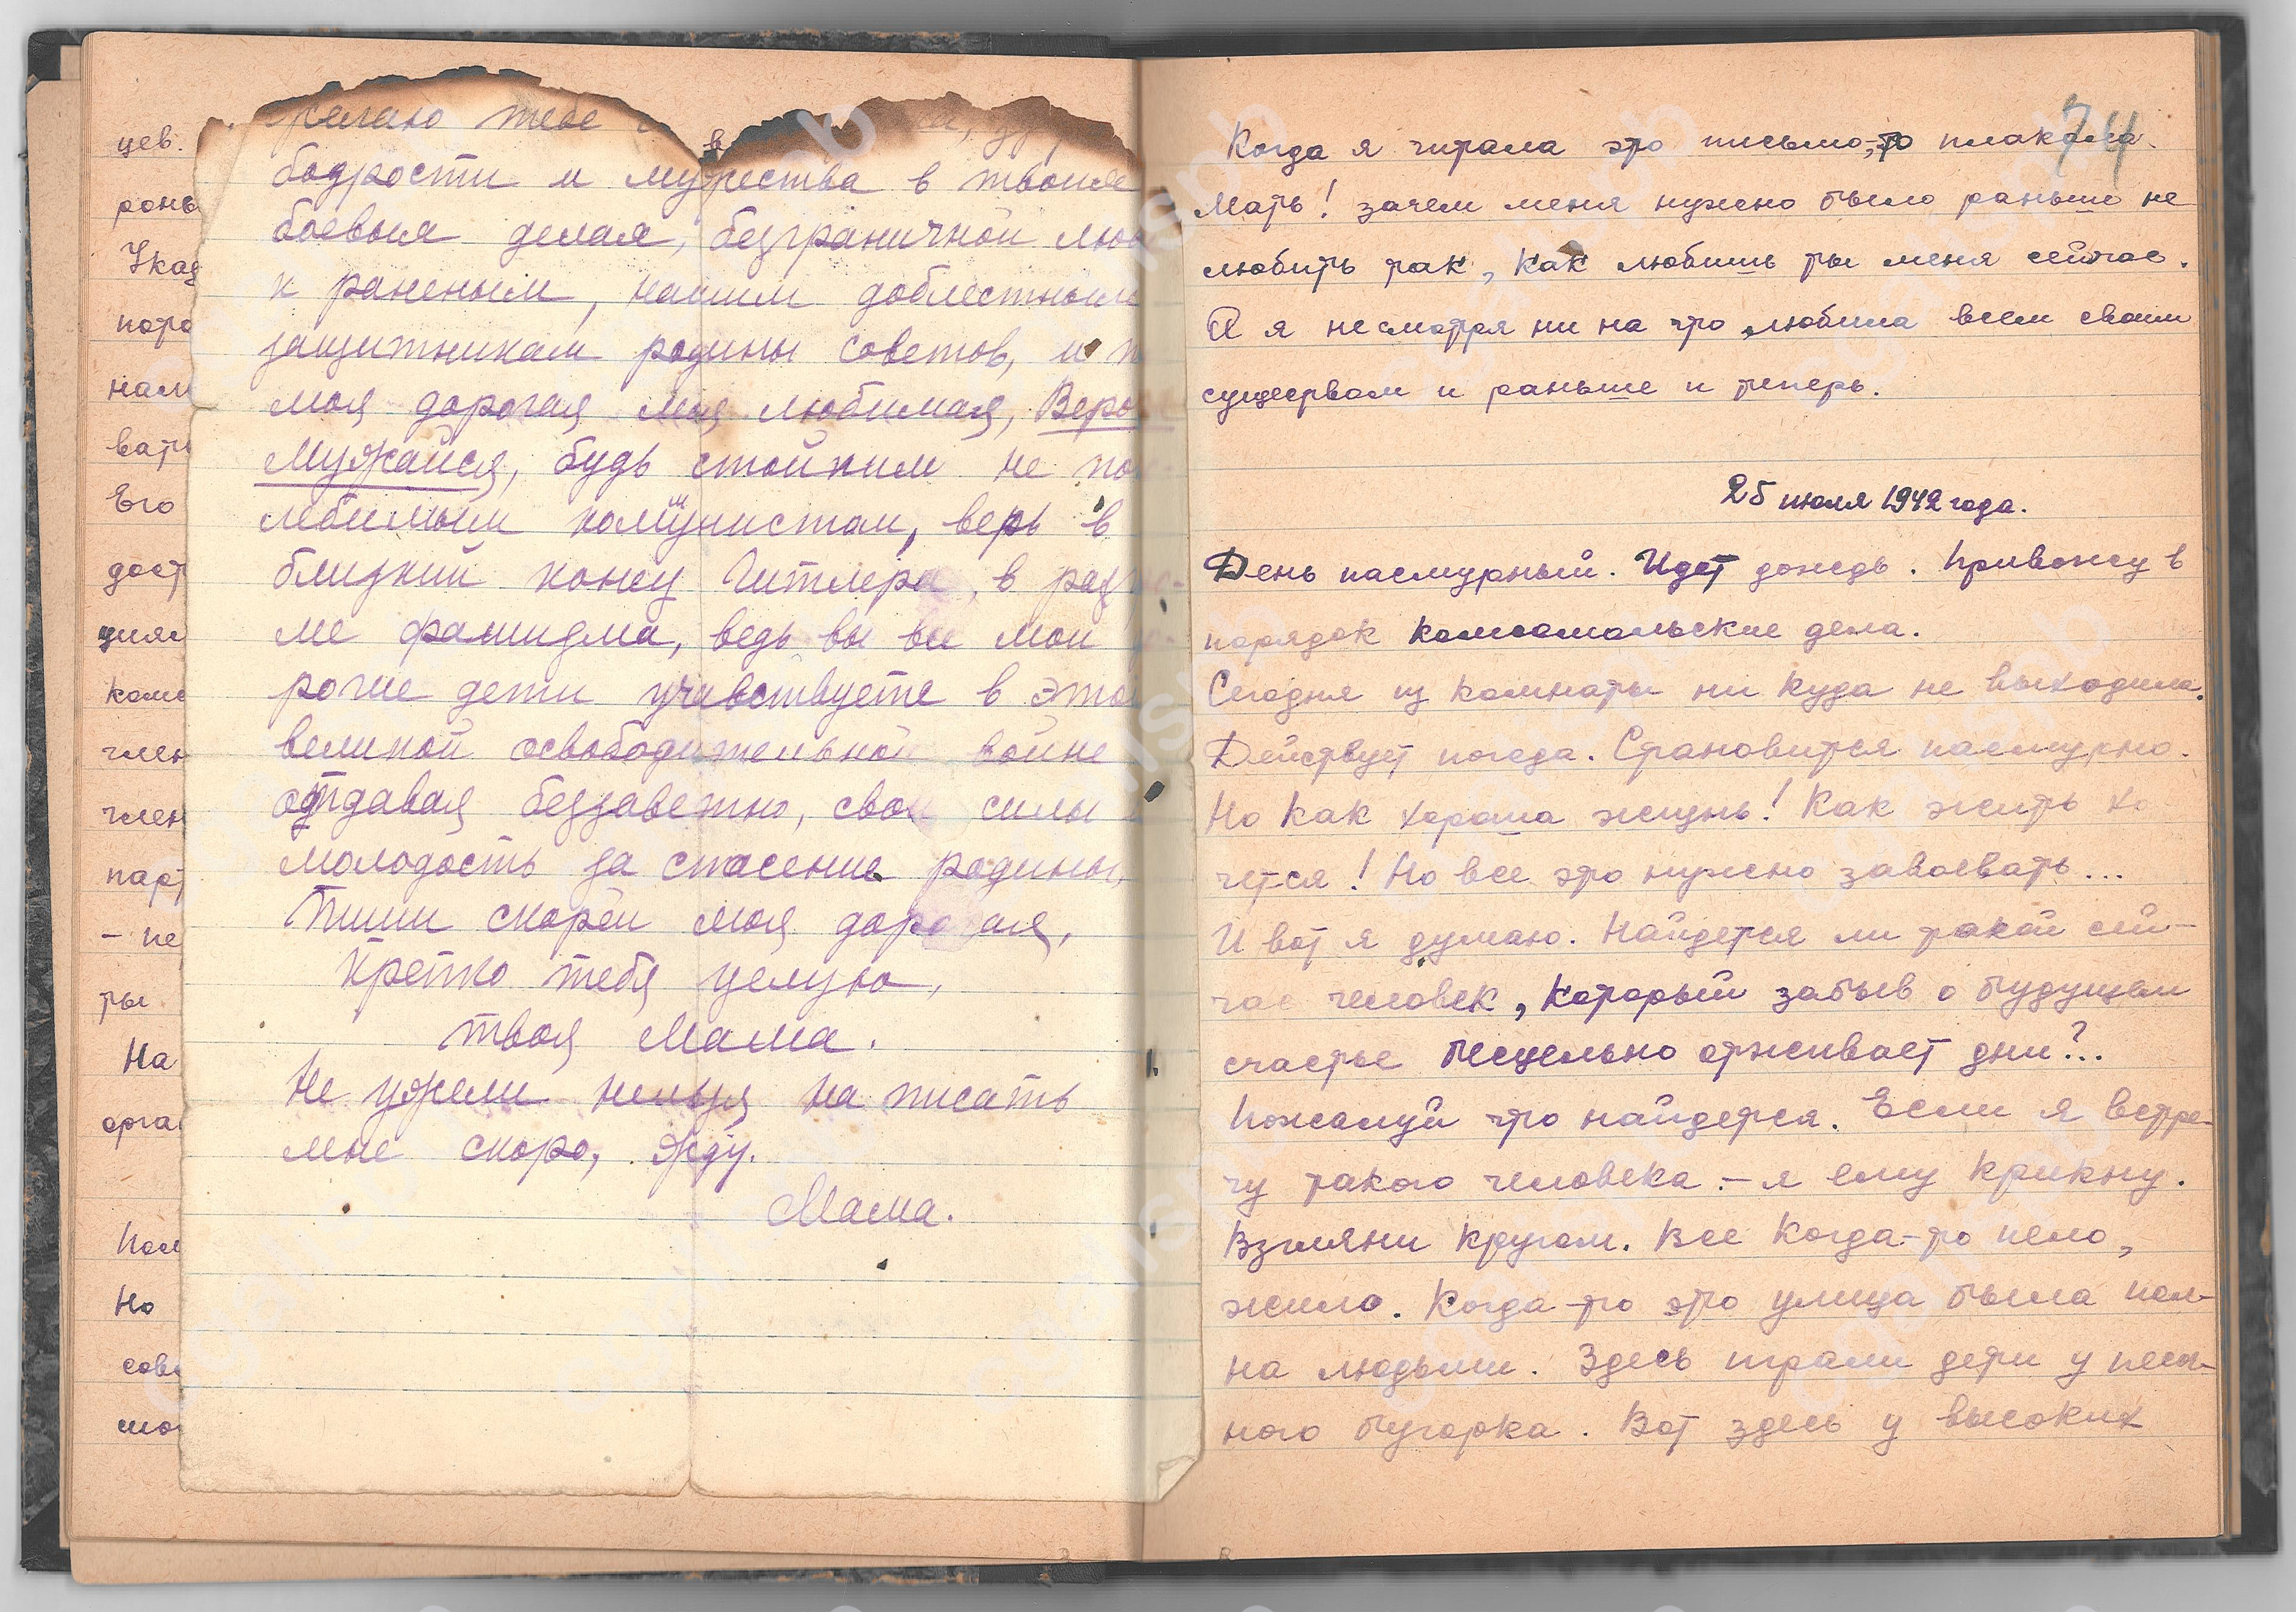 цев.
Его
– пе
ты
На
но
желаю тебе
бодрости и мужества в твоих
боевых делах, безграничной люб
к раненым, нашим доблестным
защитникам родины советов, и
моя дорогая моя любимая, Веро
Мужайся, будь стойким не по
лебимым коммунистом, верь в
близкий конец Гитлера, в разг
ме фашизма, ведь вы все мои
рогие дети учавствуете в этой
великой освободительной войне
отдавая беззаветно, свои силы
молодость за спасение родины,
Пиши скорей моя дорогая,
Крепко тебя целую,
твоя Мама.
Не ужели нельзя на писать
мне скоро, жду.
Мама.
74
Когда я читала это письмо,-то плакала.
Мать! зачем меня нужно было раньше не
любить так, как любишь ты меня сейчас.
А я несмотря ни на что любила всем своим
существом и раньше и теперь.
25 июля 1942 года.
День пасмурный. Идет дождь. Привожу в
порядок комсомольские дела.
Сегодня из комнаты ни куда не выходила.
Действует погода. Становится пасмурно.
Но как хороша жизнь! Как жить хо
чется! Но все это нужно завоевать...
И вот я думаю. Найдется ли такой сей-
час человек, который забыв о будущем
счастье бесцельно отживает дни?..
Пожалуй что найдется. Если я встре-
чу такого человека - я ему крикну.
Взгляни кругом. Все когда-то пело,
жило. Когда-то это улица была пол-
на людьми. Здесь играли дети у песч-
ного бугорка. Вот здесь у высоких